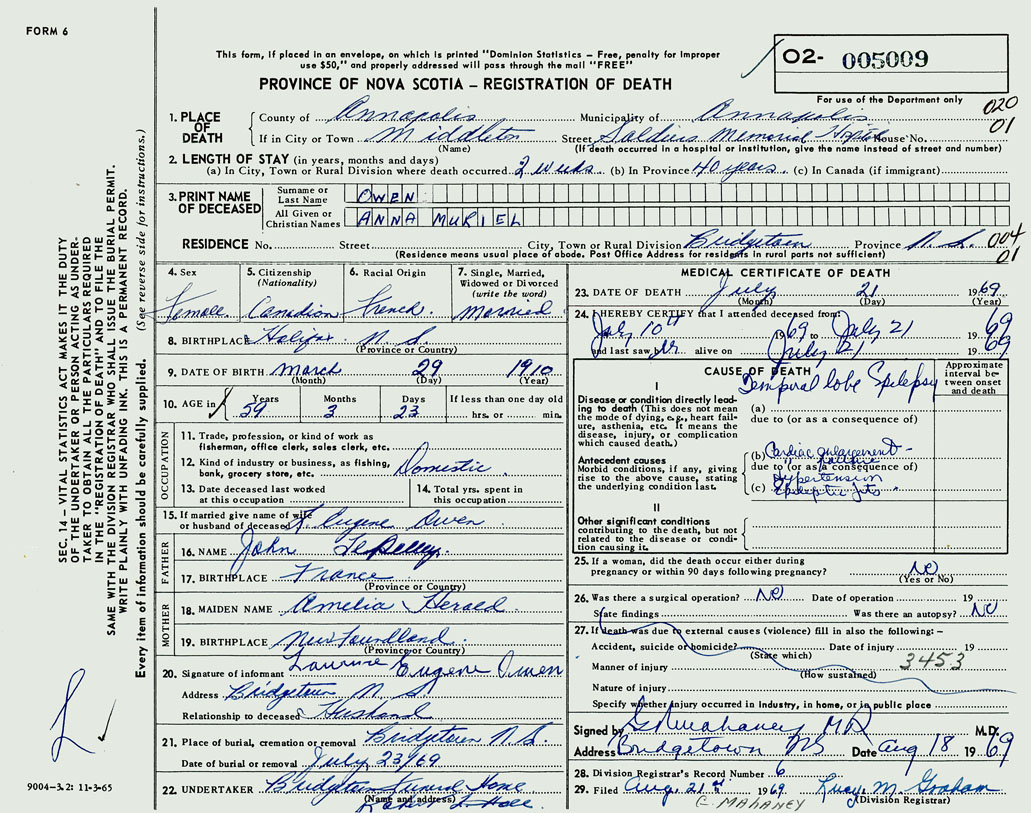 FORM 6
This form, if placed in an envelope, on which is printed "Dominion Statistics – Free, penalty for Improper
use $50," and properly addressed will pass through the mail "FREE"
PROVINCE OF NOVA SCOTIA – REGISTRATION OF DEATH
02- 005009
For use of the Department only
020
01
1. PLACE OF DEATH
County of Annapolis Municipality of Annapolis
If in City or Town Middleton Street Soldiers Memorial Hospital House No.
(Name) (If death occurred in a hospital or institution, give the name instead of street and number)
2. LENGTH OF STAY (in years, months and days)
(a) In City, Town or Rural Division where death occurred 2 weeks (b) In Province 40 years (c) In Canada (if immigrant)
3. PRINT NAME OF DECEASED
Surname or Last Name OWEN
All Given or Christian Names ANNA MURIEL
RESIDENCE No. Street City, Town or Rural Division Bridgetown Province N.S.
004
01
(Residence means usual place of abode. Post Office Address for residents in rural parts not sufficient)
4. Sex Female
5. Citizenship (Nationality) Canadian
6. Racial Origin French
7. Single, Married, Widowed or Divorced (write the word) Married
8. BIRTHPLACE Halifax N.S.
(Province or Country)
9. DATE OF BIRTH March 29 1910
(Month) (Day) (Year)
10. AGE in Years 59 Months 3 Days 23 If less than one day old hrs. or min.
OCCUPATION
11. Trade, profession, or kind of work as fisherman, office clerk, sales clerk, etc.
12. Kind of industry or business, as fishing, bank, grocery store, etc. Domestic
13. Date deceased last worked at this occupation
14. Total yrs. spent in this occupation
15. If married give name of wife or husband of deceased L. Eugene Owen
FATHER
16. NAME John
17. BIRTHPLACE France
(Province or Country)
MOTHER
18. MAIDEN NAME Amelia Herald
19. BIRTHPLACE Newfoundland
(Province or Country)
20. Signature of informant Eugene Owen
Address Bridgetown N.S.
Relationship to deceased Husband
21. Place of burial, cremation or removal Bridgetown N.S.
Date of burial or removal July 23/69
22. UNDERTAKER Bridgetown Funeral Home
(Name and address)
MEDICAL CERTIFICATE OF DEATH
23. DATE OF DEATH July 21 1969
(Month) (Day) (Year)
24. I HEREBY CERTIFY that I attended deceased from:
July 10th 1969 to July 21 69
and last saw her alive on July 21 69
CAUSE OF DEATH
Approximate interval between onset and death
I
Temporal lobe Epilepsy
Disease or condition directly leading to death (This does not mean the mode of dying, e.g., heart failure, asthenia, etc. It means the disease, injury, or complication which caused death.)
(a)
due to (or as a consequence of)
Antecedent causes
Morbid conditions, if any, giving rise to the above cause, stating the underlying condition last.
(b) Cardiac enlargement -
due to (or as a consequence of)
Hypertension
(c) Epileptic fits
II
Other significant conditions contributing to the death, but not related to the disease or condition causing it.
25. If a woman, did the death occur either during pregnancy or within 90 days following pregnancy? NO
(Yes or No)
26. Was there a surgical operation? NO Date of operation 19
State findings Was there an autopsy? NO
27. If death was due to external causes (violence) fill in also the following: –
Accident, suicide or homicide? Date of injury 19
(State which)
3453
Manner of injury
(How sustained)
Nature of injury
Specify whether injury occurred in industry, in home, or in public place
Signed by Mahaney MD M.D.
Address Bridgetown NS Date Aug 18 1969
28. Division Registrar's Record Number 6
29. Filed Aug. 21st 1969 Lucy M. Graham
(Division Registrar)
C. MAHANEY
SEC. 14 – VITAL STATISTICS ACT MAKES IT THE DUTY
OF THE UNDERTAKER OR PERSON ACTING AS UNDER-
TAKER TO OBTAIN ALL THE PARTICULARS REQUIRED
IN THE "REGISTRATION OF DEATH" AND TO FILE THE
SAME WITH THE DIVISION REGISTRAR WHO SHALL ISSUE THE BURIAL PERMIT.
WRITE PLAINLY WITH UNFADING INK. THIS IS A PERMANENT RECORD.
Every item of information should be carefully supplied. (See reverse side for instructions.)
9004-3.2: 11-3-65